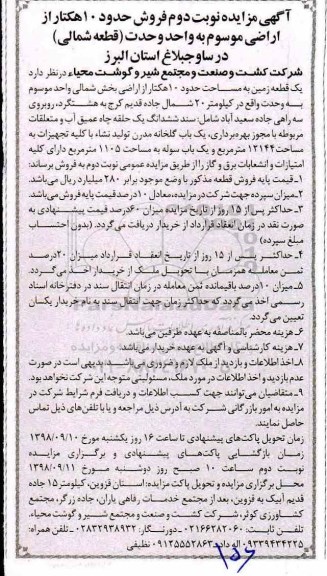 آگهی مزایده نوبت دوم فروش حدود ۱۰هکتار از
اراضی موسوم به واحد وحدت (قطعه شمالی)
در ساوجبلاغ استان البرز
شرکت کشت و صنعت و مجتمع شیر و گوشت محیاء در نظر دارد
یک قطعه زمین به مساحت حدود ۱۰هکتار از اراضی بخش شمالی واحد موسوم
به وحدت واقع در کیلومتر ۲۰ شمال جاده قدیم کرج به هشتگرد، روبروی
سه راهی جاده سعید آباد شامل: سند ششدانگ یک حلقه چاه عمیق آب و متعلقات
مربوطه با مجوز بهره‌برداری، یک باب گلخانه مدرن تولید نشاء با کلیه تجهیزات به
مساحت ۱۲۱۴۴ مترمربع و یک باب سوله به مساحت ۱۱۰۵ مترمربع دارای کلیه
امتیازات و انشعابات برق و گاز را از طریق مزایده عمومی نوبت دوم به فروش برساند:
۱-قیمت پایه فروش قطعه مذکور با وضع موجود برابر ۲۸۰ میلیارد ریال می‌باشد.
۲-میزان سپرده جهت شرکت در مزایده، معادل ۱۰درصد قیمت پایه فروش می‌باشد.
۳-حداکثر پس از ۱۵ روز از تاریخ مزایده میزان ۶۰درصد قیمت پیشنهادی به
صورت نقد در زمان انعقاد قرارداد از خریدار دریافت می گردد. (بدون احتساب
مبلغ سپرده)
۴-حداکثر پس از ۱۵ روز از تاریخ انعقاد قرارداد میزان ۲۰درصد
ثمن معامله همزمان با تحویل ملک از خریدار اخذ می‌گردد.
۵-میزان ۱۰درصد باقیمانده ثمن معامله در زمان انتقال سند در دفترخانه اسناد
رسمی اخذ می گردد که حداکثر زمان جهت انتقال سند به نام خریدار یکان
تعیین می گردد.
۶-هزینه محضر بالمناصفه به عهده طرفین می‌باشد.
۷-هزینه کارشناسی و آگهی به عهده خریدار می‌باشد.
۸-اخذ اطلاعات و بازدید از ملک لازم و ضروری می‌باشد، بدیهی است در صورت
عدم بازدید و اخذ اطلاعات در مورد ملک، مسئولیتی متوجه این شرکت نخواهد بود.
۹-متقاضیان می توانند جهت کسب اطلاعات و دریافت فرم شرایط شرکت در
مزایده به امور بازرگانی شرکت به آدرس ذیل مراجعه و یا با تلفن‌های ذیل تماس
حاصل نمایند.
زمان تحویل پاکت‌های پیشنهادی تا ساعت ۱۶ روز یکشنبه مورخ ۱۳۹۸/۰۹/۱۰
زمان بازگشایی پاکت‌های پیشنهادی و برگزاری مزایده
نوبت دوم ساعت ۱۰ صبح روز دوشنبه مورخ ۱۳۹۸/۰۹/۱۱
محل برگزاری مزایده و تحویل پاکت مزایده: استان قزوین، کیلومتر ۱۵ جاده
قدیم آبیک به قزوین، بعد از مجتمع خدمات رفاهی یاران، جاده زرگر، مجتمع
کشاورزی کوثر، شرکت کشت و صنعت و مجتمع شیر و گوشت محیاء.
تلفن ثابت: ۰۲۱۶۶۲۸۲۰۶۰ - دورنگار: ۰۲۸۳۲۹۳۸۹۳۲ - تلفن همراه:
۰۹۳۳۹۴۳۴۲۲۵ اله داد - ۰۹۱۲۵۵۵۲۸۶۳ نظیفی